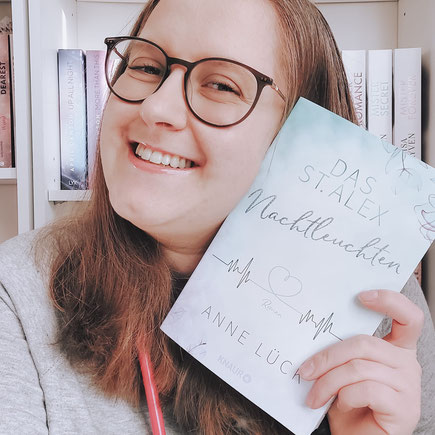 DAS
ST. ALEX
Nachtleuchten
Roman
ANNE LÜCK
KNAUR
DEAREST
ROMANCE
SECRET